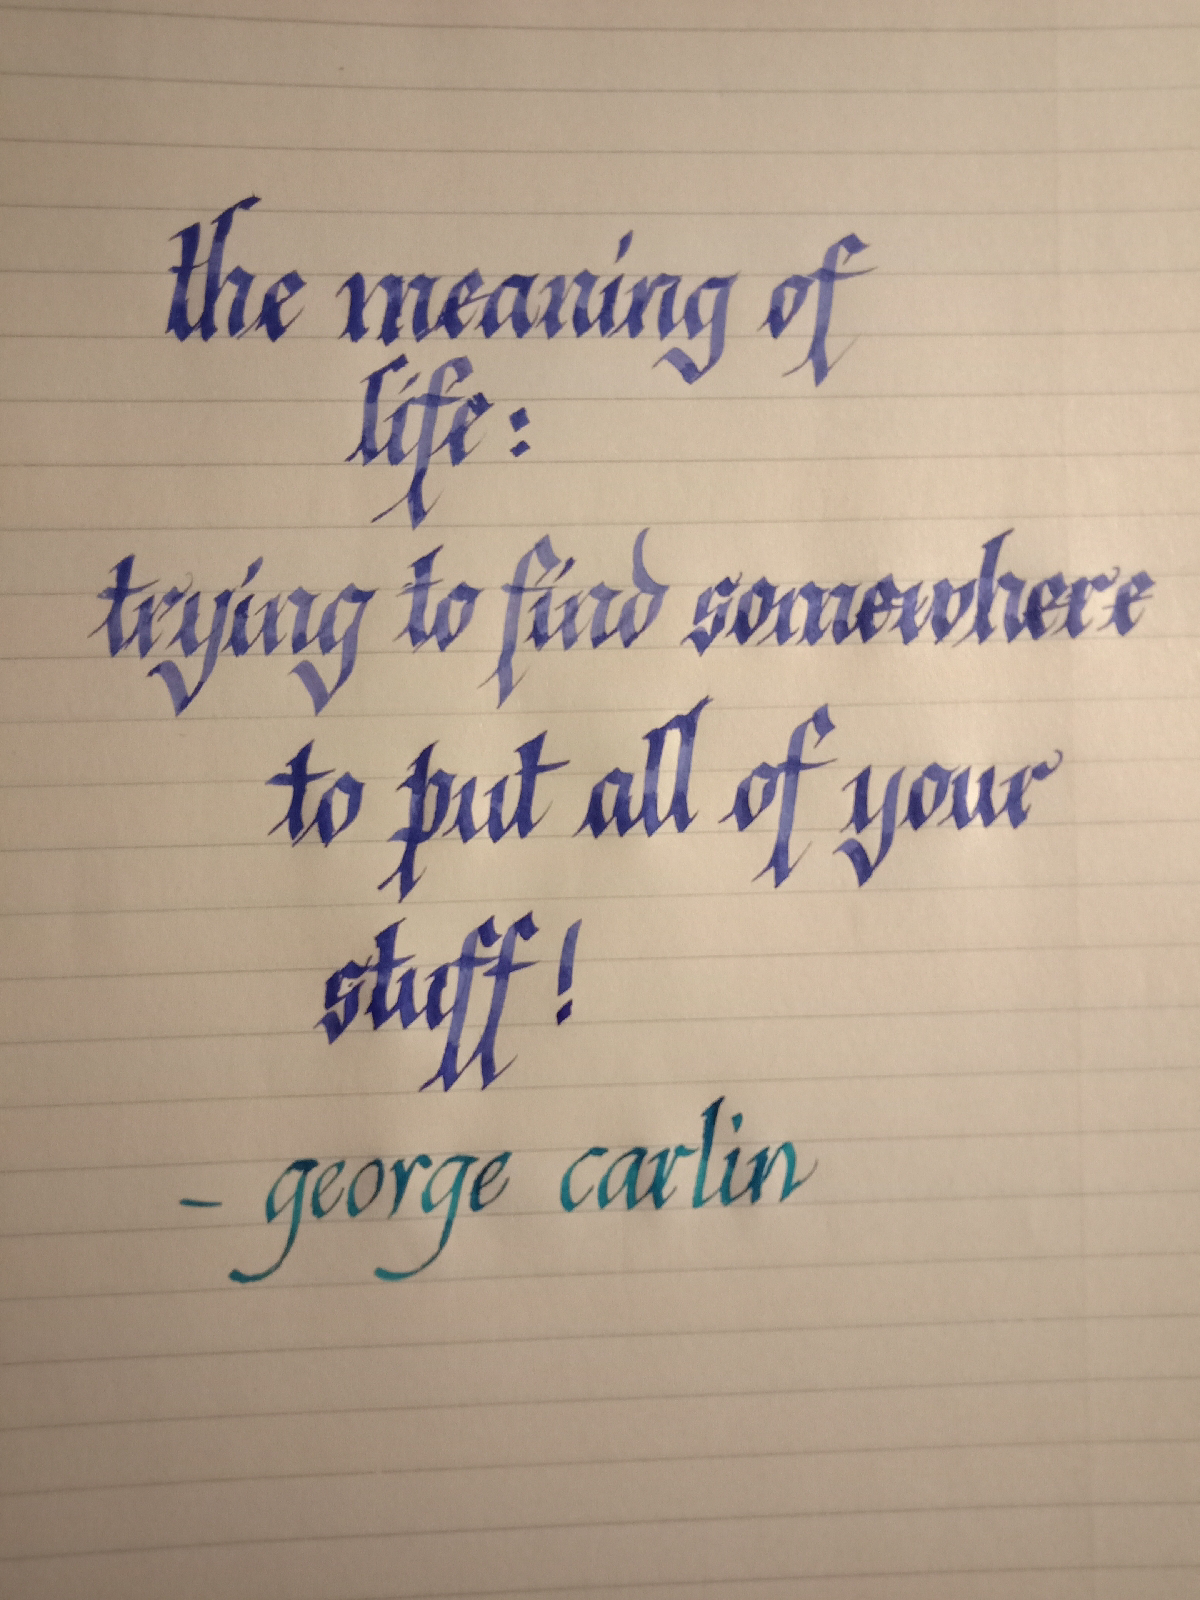 the meaning of
life:
trying to find somewhere
to put all of your
stuff!
- george carlin